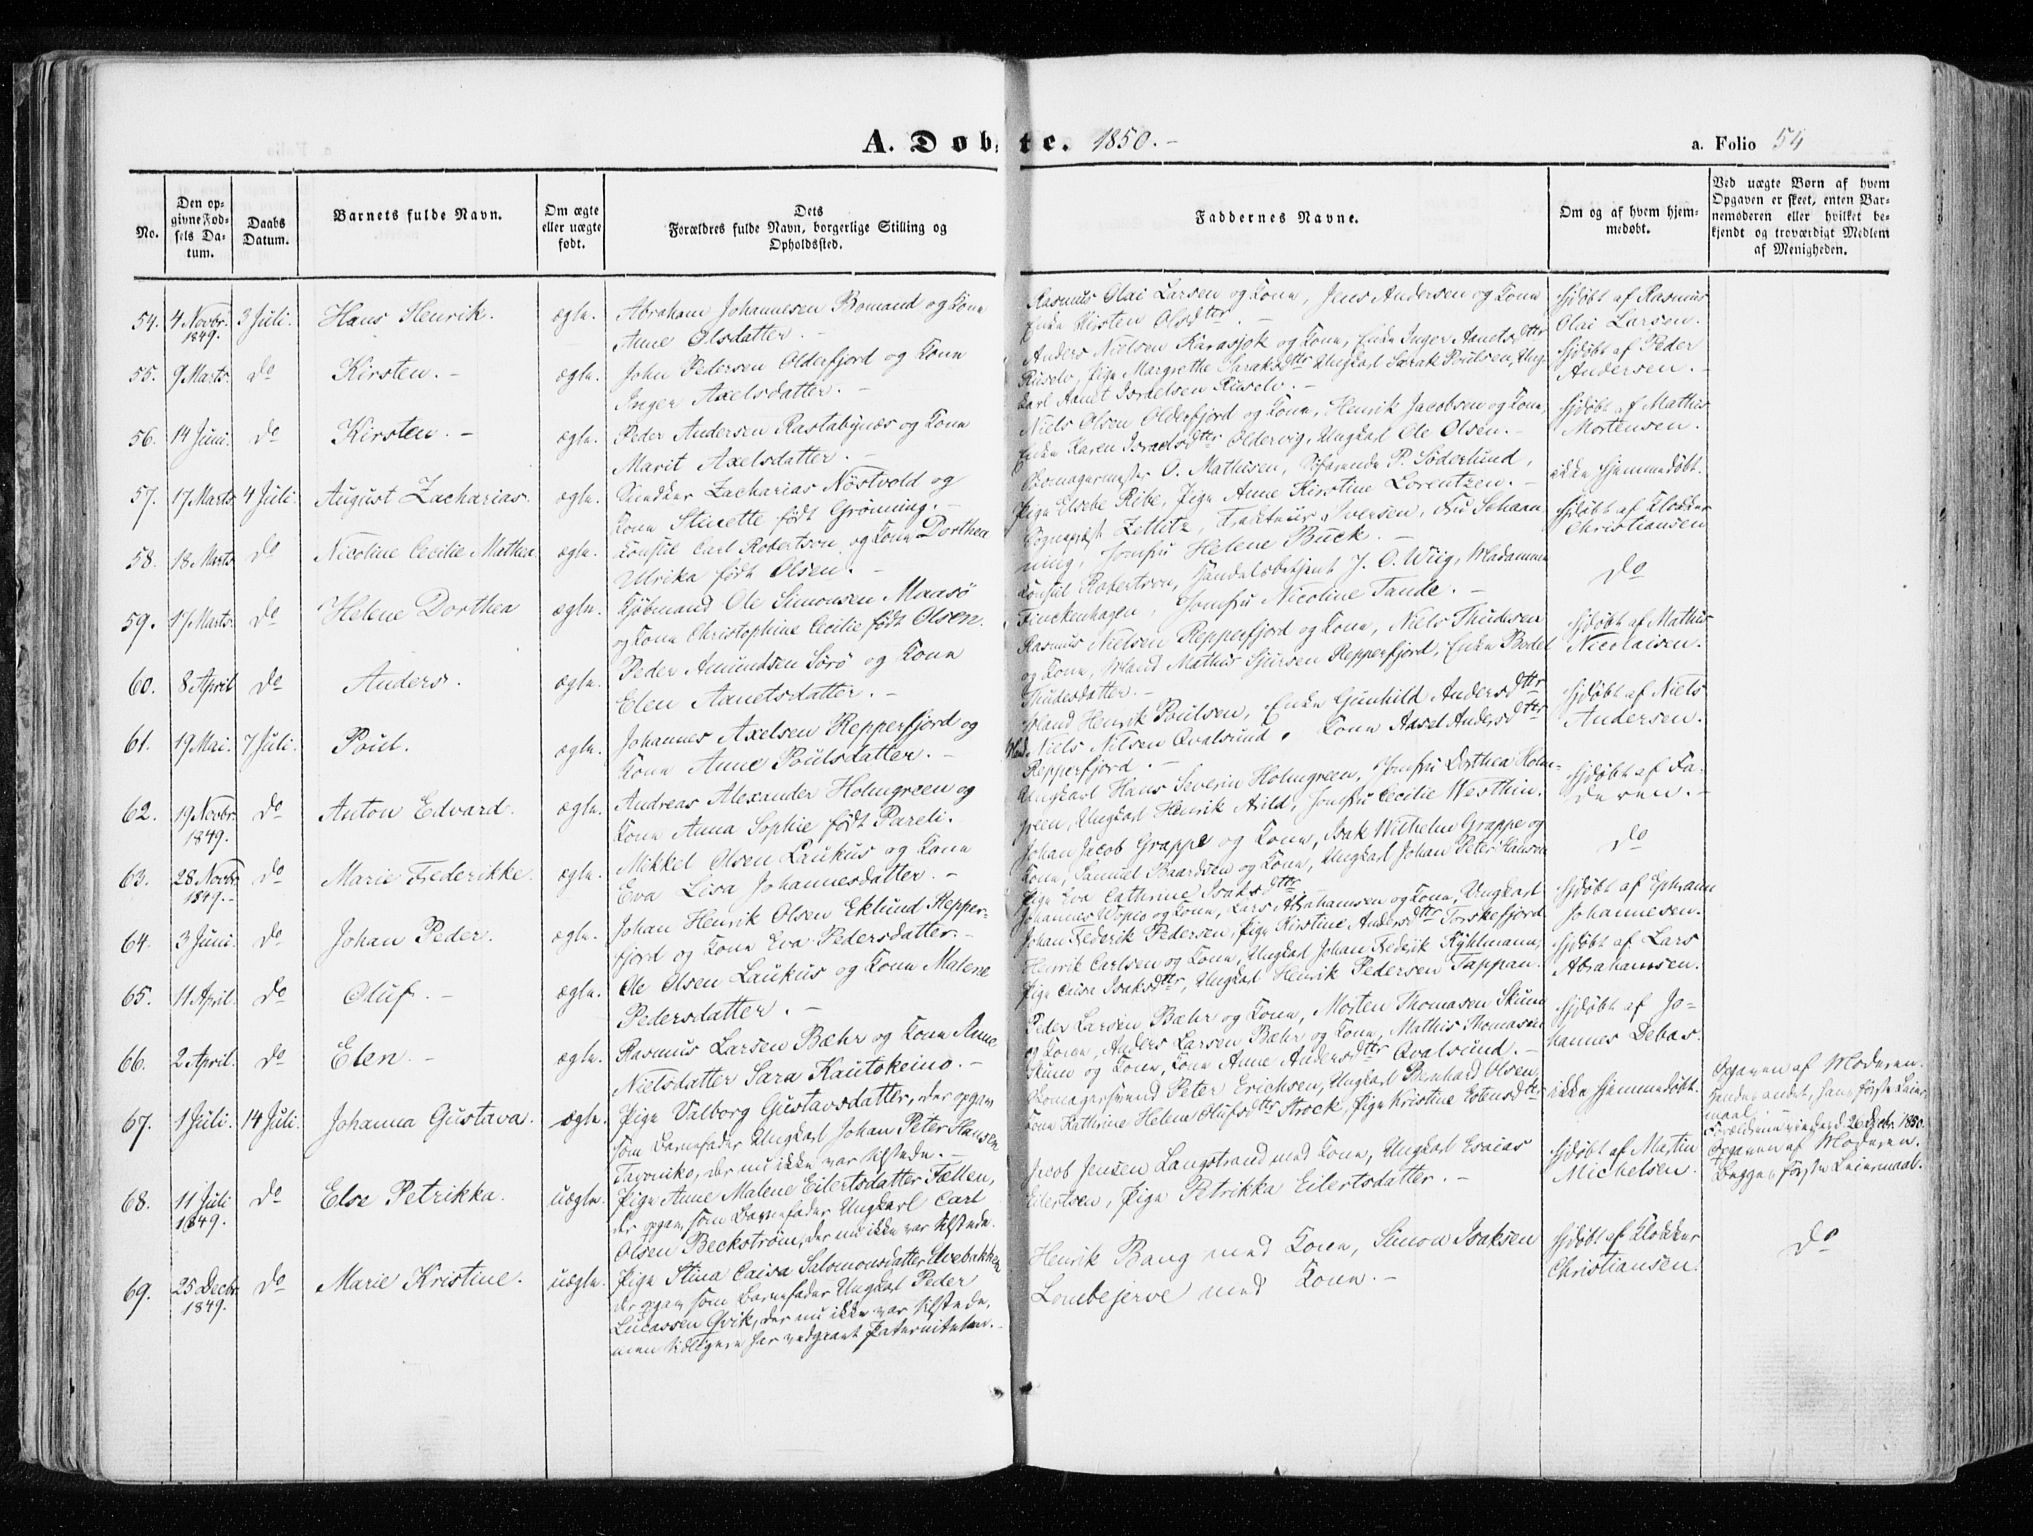 A. Døbte. 1850.-
a. Folio 54
No.
Den opgivne Fødsels Datum.
Daabs Datum.
Barnets fulde Navn.
Om ægte eller uægte født.
Dets Forældres fulde Navn, borgerlige Stilling og Opholdssted.
Faddernes Navne.
Om og af hvem hjemmedøbt.
Ved uægte Børn af hvem Opgaven er skeet, enten Barnemoderen eller hvilket bekjendt og troværdigt Medlem af Menigheden.
54. 4 Novbr. 1849. 3 Juli. Hans Henrik. ægte.
Abraham Johannesen Bomand og Kone
Anne Olsdatter.-
Rasmus Olai Larsen og Kone, Jens Andersen og Kone
Enke Kirsten Olsdttr.-
hjdøbt af Rasmus
Olai Larsen.
55. 9 Marts. do Kirsten.- ægte.
John Pedersen Olderfjord og Kone
Inger Axelsdatter.-
Anders Nielsen Karasjok og Kone, Enke Inger Aanetsdttr
Russelv, Pige Margrethe Saraksdttr Ungkarl Sarak Poulsen, Ung-
karl Aanet Israelsen Russelv.-
hjdøbt af Peder
Andersen.-
56. 14 Juni. do Kirsten.- ægte.
Peder Andersen Rastabynæs og Kone
Marit Axelsdatter.-
Niels Olsen Olderfjord og Kone, Henrik Jacobsen og Kone,
Enke Karen Israelsdttr Oldervig, Ungkarl Ole Olsen.-
hjdøbt af Mathis
Mortensen.
57. 17 Marts 4 Juli. August Zacharias. ægte.
Snedker Zacharias Nöstvold og
Kone Stinette født Grønning.-
Skomagermester O. Mathisen, Söfarende P. Söderlund,
Pige Elsebe Ribe, Pige Anne Kirstine Lorentzen.-
ikke hjemmedøbt.
58. 18 Marts do Nicoline Cecilie Mathea ægte.
Konsul Carl Robertson og Kone Dorthea
Ulrika født Olsen.-
Sognepræst Zetlitz, Fakteur Iversen, Fru Schan-
ning, Jomfru Helene Buck.-
hjdøbt af Klokker
Christiansen
59. 17 Marts. do Helene Dorthea ægte.
Kjøbmand Ole Simonsen Maasö
og Kone Christophine Cecilie født Olsen.
Konsul Robertson, Handelsbetjent J. O. Wiig, Madamme
Finckenhagen, Jomfru Nicoline Tande.-
do
60. 8 April do Anders. ægte.
Peder Amundsen Sörö og Kone
Elen Aanetsdatter.-
Rasmus Nielsen Repperfjord og Kone, Niels Thudesen
og Kone, Mand Mathis Sjursen Repperfjord, Enke Bodel
Thudesdatter.-
hjdøbt af Mathis
Nicolaisen.
61. 19 Mai. 7 Juli. Poul. ægte.
Johannes Axelsen Repperfjord og
Kone Anne Poulsdatter.-
Mand Henrik Poulsen, Enke Gunhild Andersdttr
Mand Niels Nilsen Qvalsund, Kone Aasel Andersdttr
Repperfjord.-
hjdøbt af Niels
Andersen.
62. 19 Novbr. 1849. do Anton Edvard. ægte.
Andreas Alexander Holmgreen og
Kone Anna Sophie født Pareli.
Ungkarl Hans Severin Holmgreen, Jomfru Dorthea Holm-
green, Ungkarl Henrik Arild, Jomfru Cecilie Westhin.
hjdøbt af Fa-
deren.-
63. 28 Novbr 1849.- do Marie Frederikke. ægte.
Mikkel Olsen Laukus og Kone
Eva Lisa Johannesdatter.-
Johan Jacob Grappe og Kone, Isak Wilhelm Grappe og
Kone, Samuel Baardsen og Kone, Ungkarl Johan Peter Hansen
Pige Eva Cathrine Isaksdttr
do
64. 3 Juni. do Johan Peder. ægte.
Johan Henrik Olsen Eklund Repper-
fjord og Kone Eva Pedersdatter.-
Johannes Wopio og Kone, Lars Abrahamsen og Kone, Ungkarl
Johan Frederik Pedersen, Pige Kirstine Andersdttr Torskefjord
hjdøbt af Ephraim
Johannesen.
65. 11 April. do Oluf.- ægte.
Ole Olsen Laukus og Kone Malene
Pedersdatter.-
Henrik Carlsen og Kone, Ungkarl Johan Frederik Kyhlmann,
Pige Caisa Isaksdttr, Ungkarl Henrik Pedersen Tappan.
hjdøbt af Lars
Abrahamsen.
66. 2 April. do Elen.- ægte.
Rasmus Larsen Bæhr og Kone Anne
Nielsdatter Sara Kautokeino.-
Peder Larsen Bæhr og Kone, Morten Thomasen Skum
og Kone, Anders Larsen Bæhr og Kone, Mathis Thomasen
Skum og Kone, Kone Anne Andersdttr Qvalsund.-
hjdøbt af Jo-
hannes Debas.
67. 1 Juli. 14 Juli. Johanna Gustava. ægte.
Pige Valborg Gustavsdatter, der opgav
som Barnefader Ungkarl Johan Peter Hansen
der nu ikke var tilstede.-
Skomagersvend Peter Erichsen, Ungkarl Bernhard Olsen,
Kone Kathrine Helene Olufsdttr Strock, Pige Kristine Estensdttr
ikke hjemmedøbt.
Opgaven af Moderen.
Hendes andet, hans første Leier-
maal.
Forældrene viede d 26 Decbr. 1850.
68. 11 Juli 1849. do Else Petrikka. uægte.
Pige Anne Malene Eilertsdatter Fallen,
der opgav som Barnefader Ungkarl Carl
Olsen Beckström, der nu ikke var tilstede.
Jacob Jensen Langstrand med Kone, Ungkarl Esaias
Eilertsen, Pige Petrikka Eilertsdatter.-
hjdøbt af Martin
Michelsen.
Opgaven af Moderen.
Begges første Leiermaal.
69. 25 Decbr 1849. do Marie Kristine. uægte.
Pige Stina Caisa Salomonsdatter Elvebakken,
der opgav som Barnefader Ungkarl Peder
Lucassen Qvik, der nu ikke var tilstede,
men tidligere har vedgaaet Paterniteten.-
Henrik Bang med Kone, Simon Isaksen
Lombejerve med Kone.-
hjdøbt af Klokker
Christiansen.
do